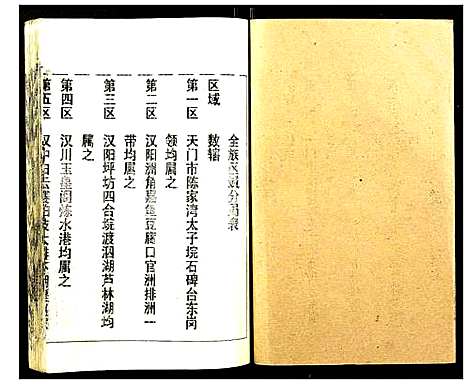 全族区域分布表
区域　数辖
第一区　天门市陈家湾太子垸石碑台东岗
岭均属之
第二区　汉阳洲角嘉鱼豆腐口官洲排洲一
带均属之
第三区　汉阳坪坊四台垸渡泗湖芦林湖均
属之
第四区　汉川玉皇阁涤水港均属之
第五区